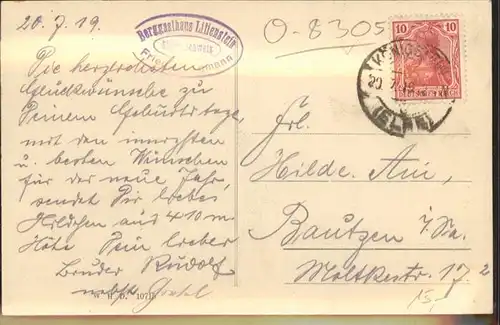 20.7.19.
Berggasthaus Lilienstein
O-8305
10 10
KÖNIGSTEIN
20. 7. 19
(ELBE)
Die herzlichsten
Glückwünsche zu
Deinem Geburtstag,
mit den innigsten
u. besten Wünschen
für das neue Jahr,
sendet Dir liebes
Hildchen aus 410 m
Höhe Dein lieber
Bruder Rudolf
nebst
Frl.
Hilde
Bautzen i/Sa.
Moltkestr. 17. 2
W. H. D. 107